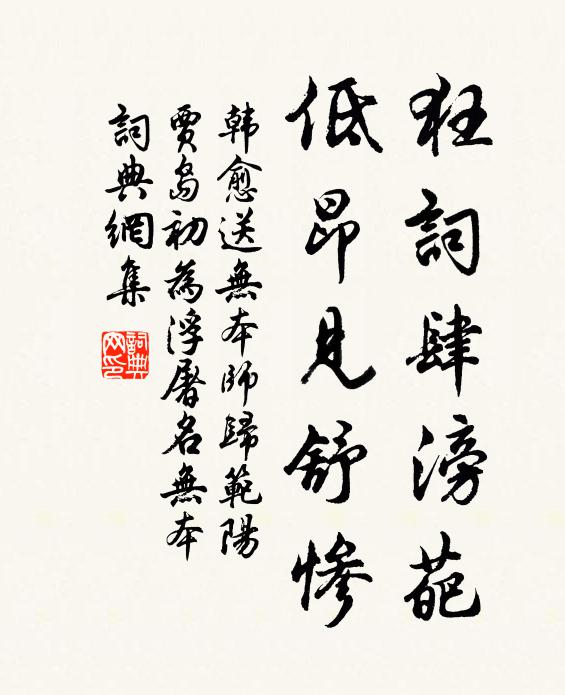 狂詞肆滂葩
低昂見舒慘
韩愈送無本師歸範陽
賈島初為浮屠名無本
詞典網集
詞典
网印